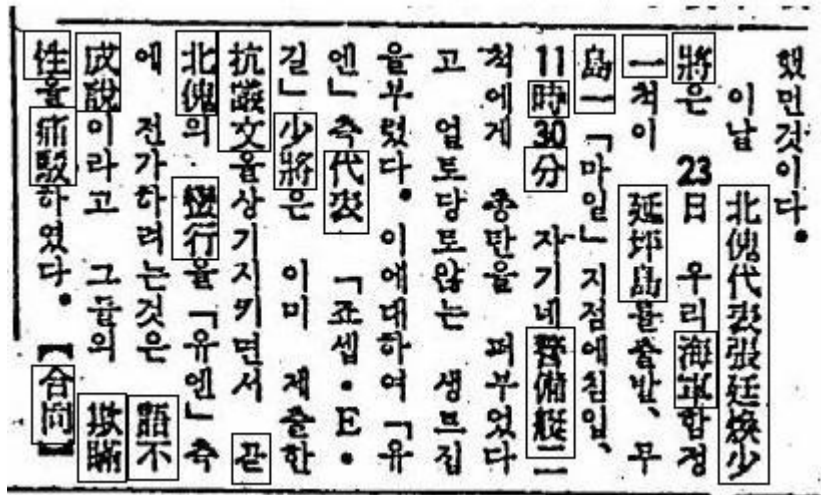 했던것이다。
이날 北傀代表張廷煥少
將은 23日 우리 海軍함정
一척이 延坪島를출발、무
島一「마일」지점에침입、
11時30分 자기네 警備艇二
척에게 총탄을 퍼부었다
고 얼토당토않는 생트집
을부렸다。이에대하여「유
엔」측代表「죠셉·E·
길」少將은 이미 제출한
抗議文을상기시키면서 끝
北傀의 蠻行을「유엔」측
에 전가하려는것은 語不
成說이라고 그들의 欺瞞
性을 痛駁하였다。【合同】